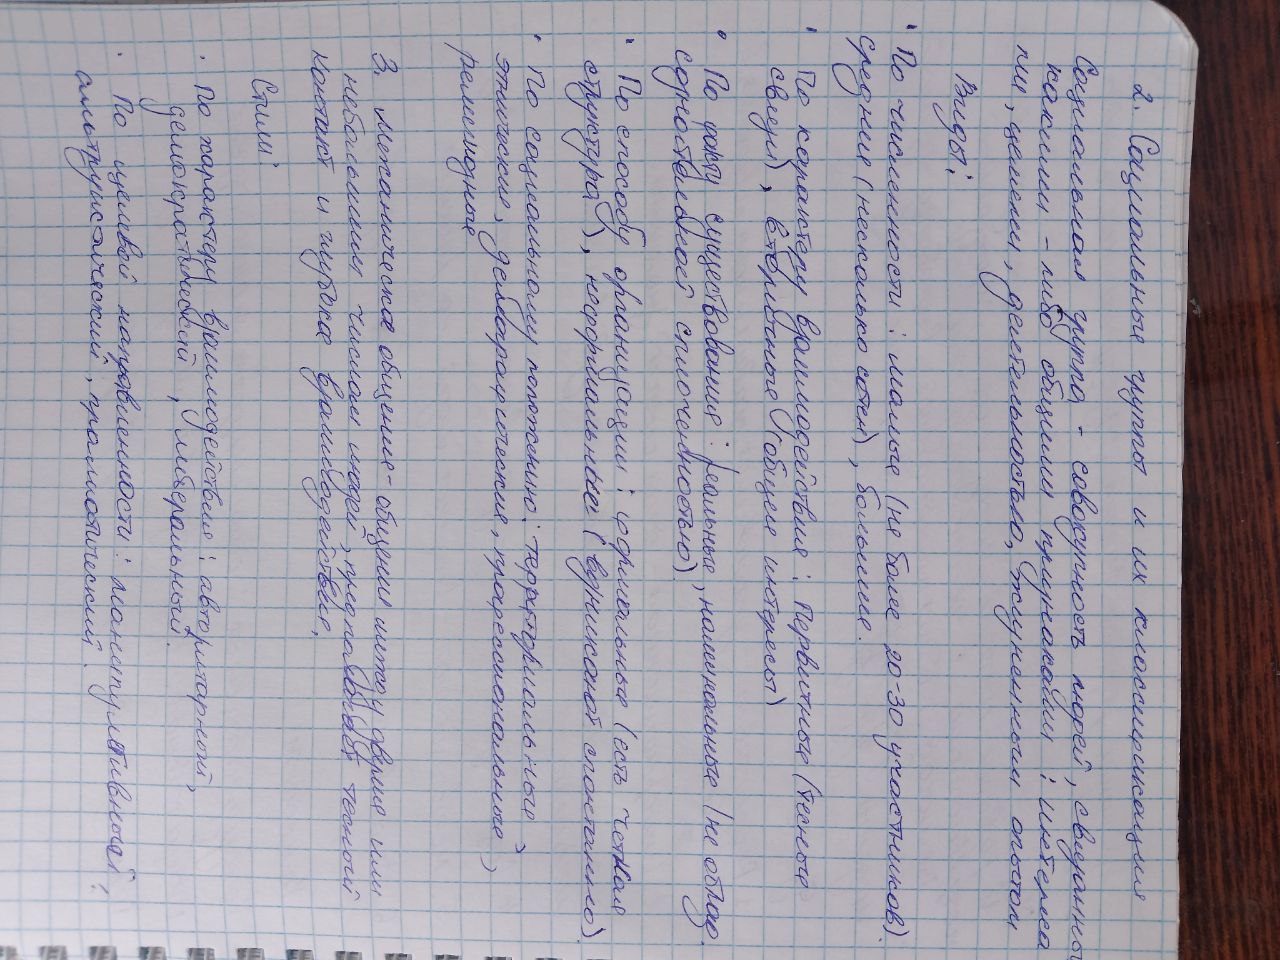 2. Социальные группы и их классификация
Социальная группа - совокупность людей, связанных
какими-либо общими признаками: интереса
ми, целями, деятельностью, жизненным опытом
Виды:
• По численности: малые (не более 20-30 участников),
средние (несколько сотен), большие.
• По характеру взаимодействия: Первичные (тесные
связи), вторичные (общие интересы)
• По факту существования: реальные, номинальные (не облад.
сплоченностью)
• По способу организации: формальные (есть четкая
структура), неформальные (возникают спонтанно).
• По социальному положению: территориальные,
этнические, демографические, профессиональные,
религиозные
3. Механическое общение - общение между двумя или
небольшим числом людей, тесный
контакт и глубокое взаимодействие.
Стили:
• По характеру взаимодействия: авторитарный,
демократический, либеральный.
• По целевой направленности: манипулятивный,
альтруистический,